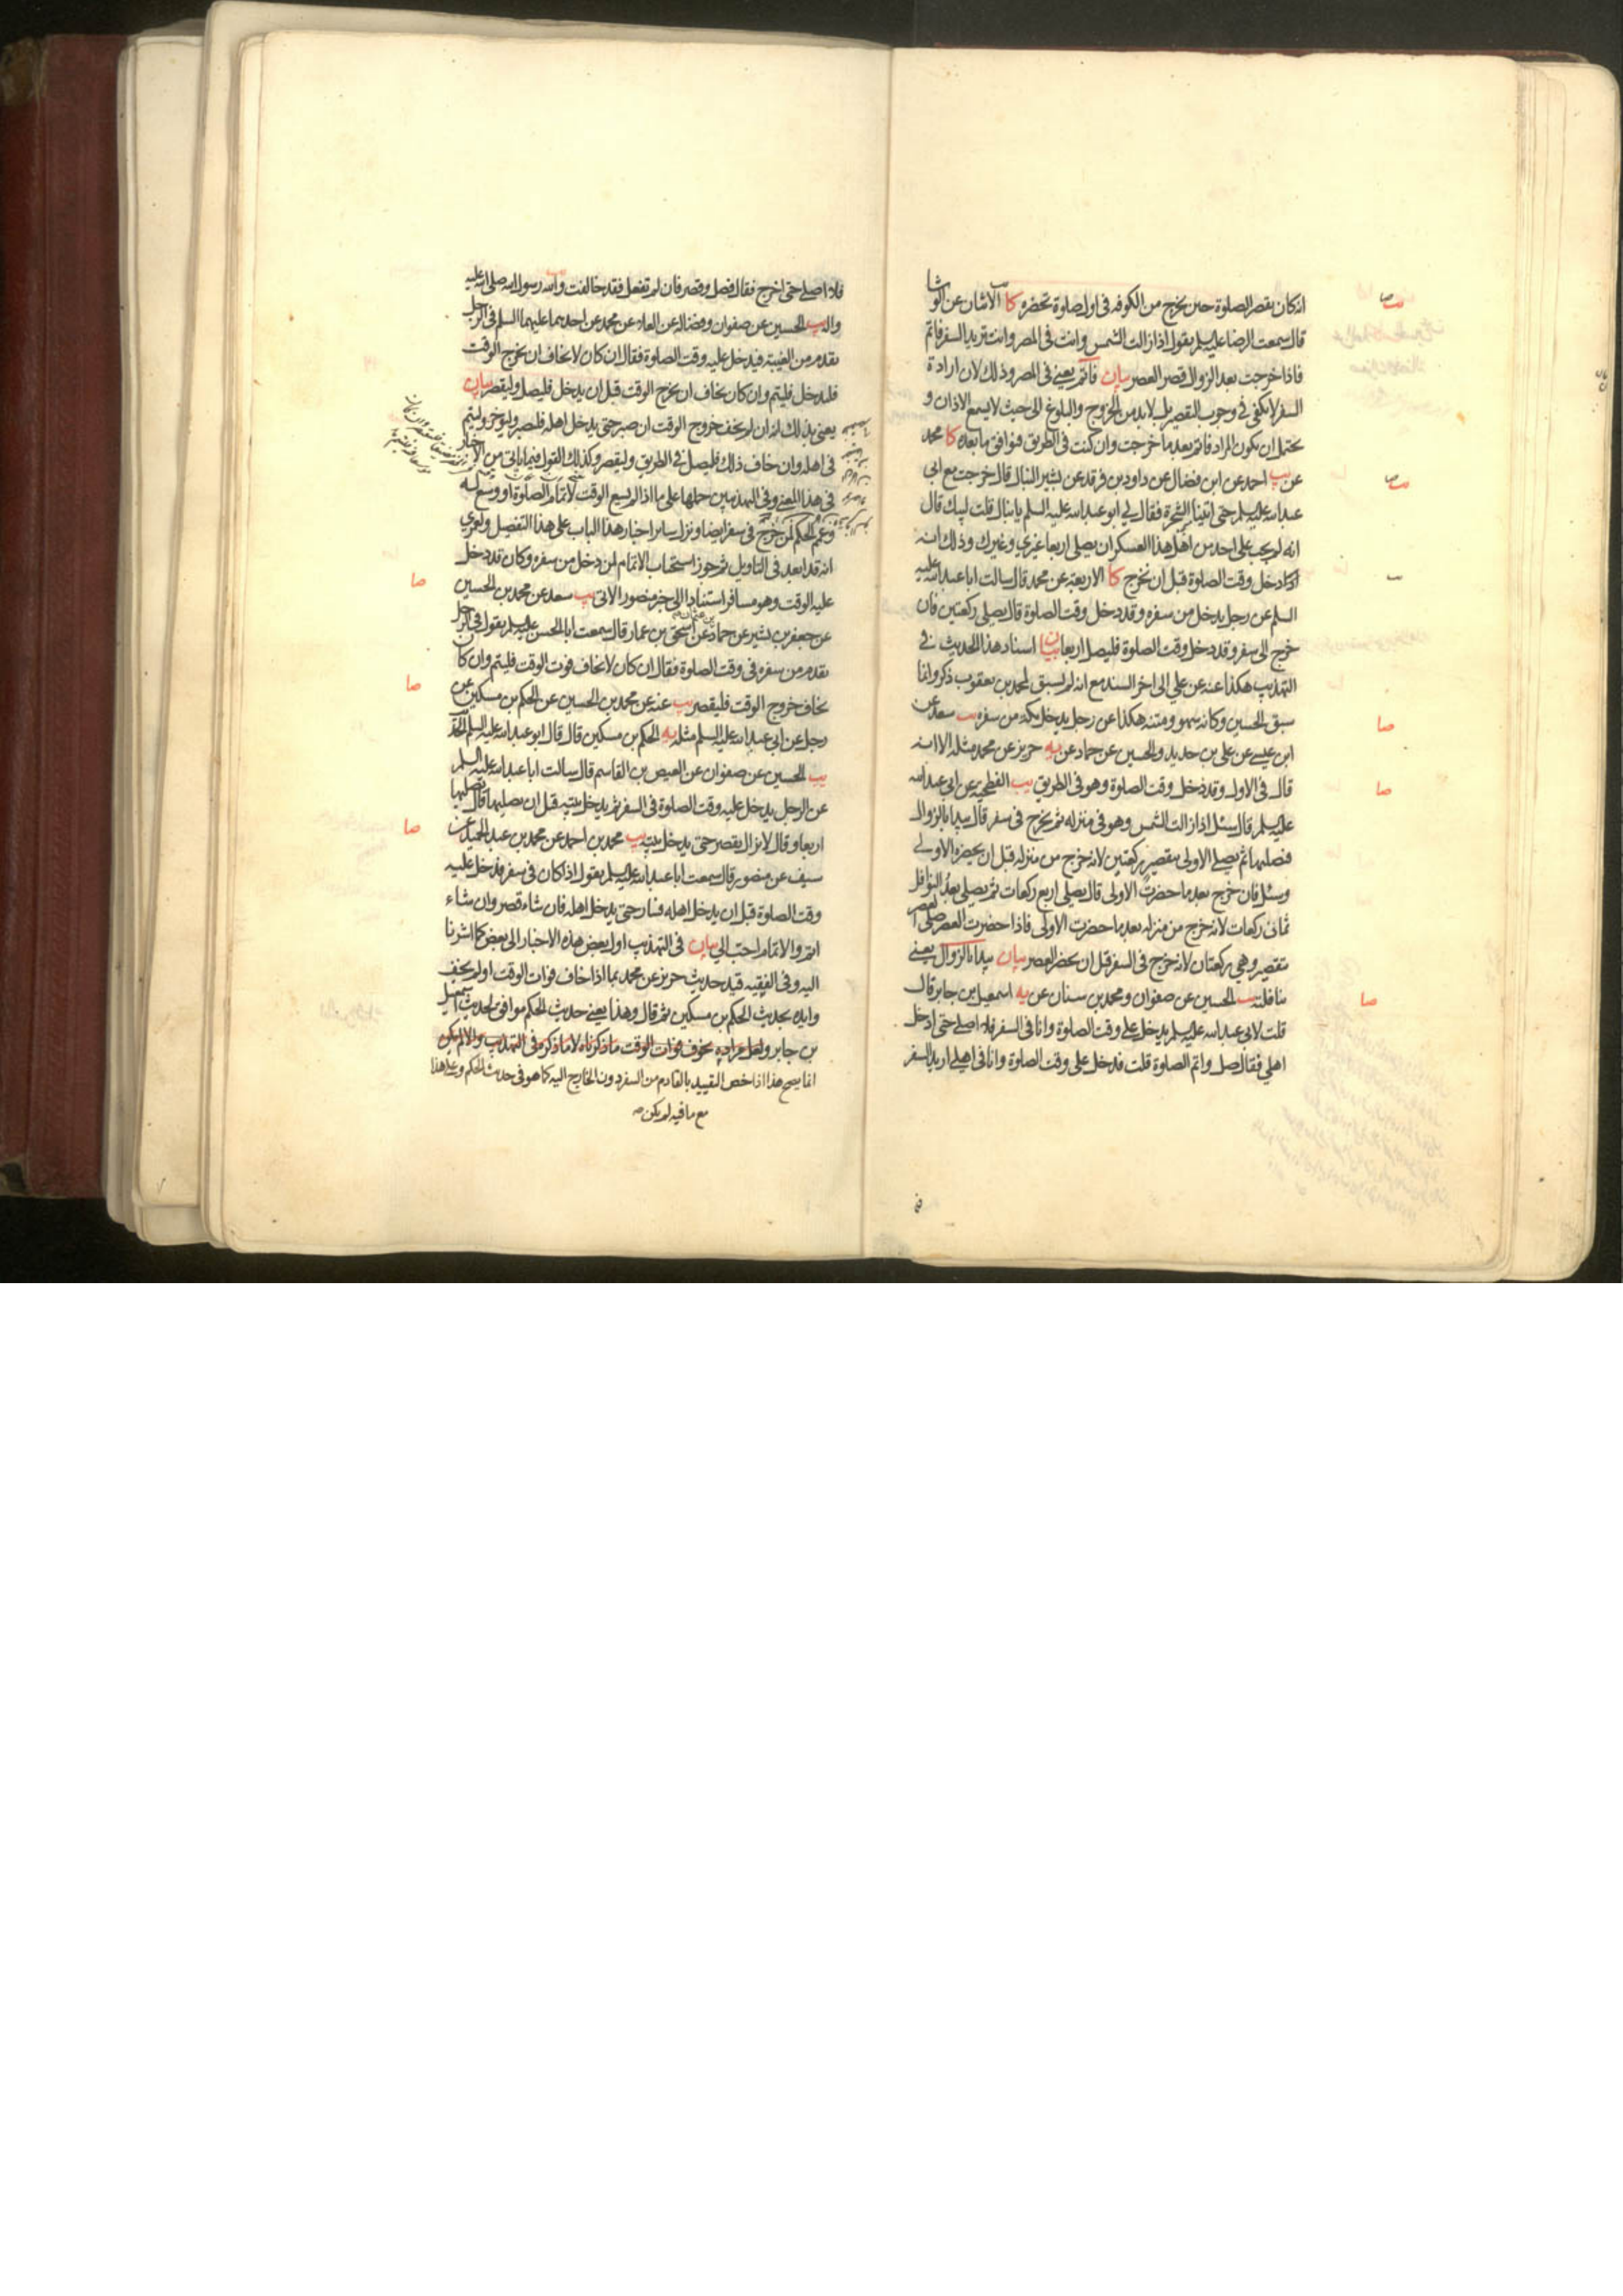 انه كان يقصر الصلوة حين يخرج من الكوفه فى اول صلوة تحضره كا الاثنان عن الوشا
قال سمعت الرضا عليه السلم يقول اذا زالت الشمس وانت فى المصر وانت تريد السفر فاتم
فاذا خرجت بعد الزوال قصر العصر بيان فاتم يعنى فى المصر وذلك لان ارادة
السفر لا تكفى فى وجوب التقصير بل لا بد من الخروج والبلوغ الى حيث لا يسمع الاذان و
يحتمل ان يكون المراد فاتم بعد ما خرجت وان كنت فى الطريق فيوافق ما بعده كا محمد
عن يب احمد عن ابن فضال عن داود بن فرقد عن بشير النبال قال خرجت مع ابى
عبد الله عليه السلم حتى اتينا الشجرة فقال لى ابو عبد الله عليه السلم يا نبال قلت لبيك قال
انه لم يجب على احد من اهل هذا العسكر ان يصلى اربعا غيرى وغيرك وذلك انه
دخل وقت الصلوة قبل ان نخرج كا الاربعة عن محمد قال سالت ابا عبد الله عليه
السلم عن رجل يدخل من سفره وقد دخل وقت الصلوة قال يصلى ركعتين فان
خرج الى سفر وقد دخل وقت الصلوة فليصل اربعا بيان اسناد هذا الحديث فى
التهذيب هكذا عنه عن على الى اخر السند مع انه لم يسبق لمحمد بن يعقوب ذكر وانما
سبق الحسين وكانه سهو ومتنه هكذا عن رجل يدخل مكه من سفره يب سعد عن
ابن عيسى عن على بن حديد والحسين عن حماد عن يه حريز عن محمد مثله الا انه
قال فى الاول وقد دخل وقت الصلوة وهو فى الطريق يب الفطحية عن ابى عبد الله
عليه السلم قال سئل اذا زالت الشمس وهو فى منزله ثم يخرج فى سفر قال يبدا بالزوال
فيصليها ثم يصلى الاولى بتقصير ركعتين لانه خرج من منزله قبل ان يحضره الاولى
وسئل فان خرج بعد ما حضرت الاولى قال يصلى اربع ركعات ثم يصلى بعد النوافل
ثمانى ركعات لانه خرج من منزله بعد ما حضرت الاولى فاذا حضرت العصر صلى العصر
بتقصير وهى ركعتان لانه خرج فى السفر قبل ان يحضر العصر بيان يبدا بالزوال يعنى
بنافلته يب الحسين عن صفوان ومحمد بن سنان عن يه اسمعيل بن جابر قال
قلت لابى عبد الله عليه السلم يدخل على وقت الصلوة وانا فى السفر فلا اصلى حتى ادخل
اهلى فقال صل واتم الصلوة قلت فدخل على وقت الصلوة وانا فى اهلى اريد السفر
فلا اصلى حتى اخرج فقال فصل وقصر فان لم تفعل فقد خالفت والله رسول الله صلى الله عليه
واله يب الحسين عن صفوان وفضاله عن العلاء عن محمد عن احدهما عليهما السلم فى الرجل
يقدم من الغيبة فيدخل عليه وقت الصلوة فقال ان كان لا يخاف ان يخرج الوقت
فليدخل فليتم وان كان يخاف ان يخرج الوقت قبل ان يدخل فليصل وليقصر بيان
يعنى بذلك انه ان لم يخف خروج الوقت ان صبر حتى يدخل اهله فليصبر وليؤخر وليتم
فى اهله وان خاف ذلك فليصل فى الطريق وليقصر وكذلك القول فيما ياتى من الاخبار
فى هذا المعنى وفى التهذيبين حملها على ما اذا لم يسع الوقت لاتمام الصلوة او وسع له
وعمم الحكم لمن خرج فى سفر ايضا ونزل ساير اخبار هذا الباب على هذا التفصيل ولعمرى
انه قد ابعد فى التاويل ثم جوز استحباب الاتمام لمن دخل من سفره وكان قد دخل
عليه الوقت وهو مسافر استنادا الى خبر منصور الاتى يب سعد عن محمد بن الحسين
عن جعفر بن بشير عن حماد بن عثمان عن اسحق بن عمار قال سمعت ابا الحسن عليه السلم يقول فى الرجل
يقدم من سفره فى وقت الصلوة فقال ان كان لا يخاف فوت الوقت فليتم وان كان
يخاف خروج الوقت فليقصر يب عنه عن محمد بن الحسين عن الحكم بن مسكين عن
رجل عن ابى عبد الله عليه السلم مثله يه الحكم بن مسكين قال قال ابو عبد الله عليه السلم الحديث
يب الحسين عن صفوان عن العيص بن القاسم قال سالت ابا عبد الله عليه السلم
عن الرجل يدخل عليه وقت الصلوة فى السفر ثم يدخل بيته قبل ان يصليها قال يصليها
اربعا وقال لا يزال يقصر حتى يدخل بيته يب محمد بن احمد عن محمد بن عبد الحميد عن
سيف عن منصور قال سمعت ابا عبد الله عليه السلم يقول اذا كان فى سفر فدخل عليه
وقت الصلوة قبل ان يدخل اهله فسار حتى يدخل اهله فان شاء قصر وان شاء
اتم والاتمام احب الى بيان فى التهذيب اول بعض هذه الاخبار الى بعض كما اشرنا
اليه وفى الفقيه قيد حديث حريز عن محمد بما اذا خاف فوات الوقت او لم يخف
وايده بحديث الحكم بن مسكين ثم قال وهذا يعنى حديث الحكم موافق لحديث اسمعيل
بن جابر ولعل مراده بخوف فوات الوقت ما ذكرناه لا ما ذكره فى التهذيب والا لم يكن
انما يصح هذا اذا خص التقييد بالقادم من السفر دون الخارج اليه كما هو فى حديث الحكم وعلى هذا
مع ما فيه لم يكن
صا
صا
صا
صا
صا
صا
صا
صا